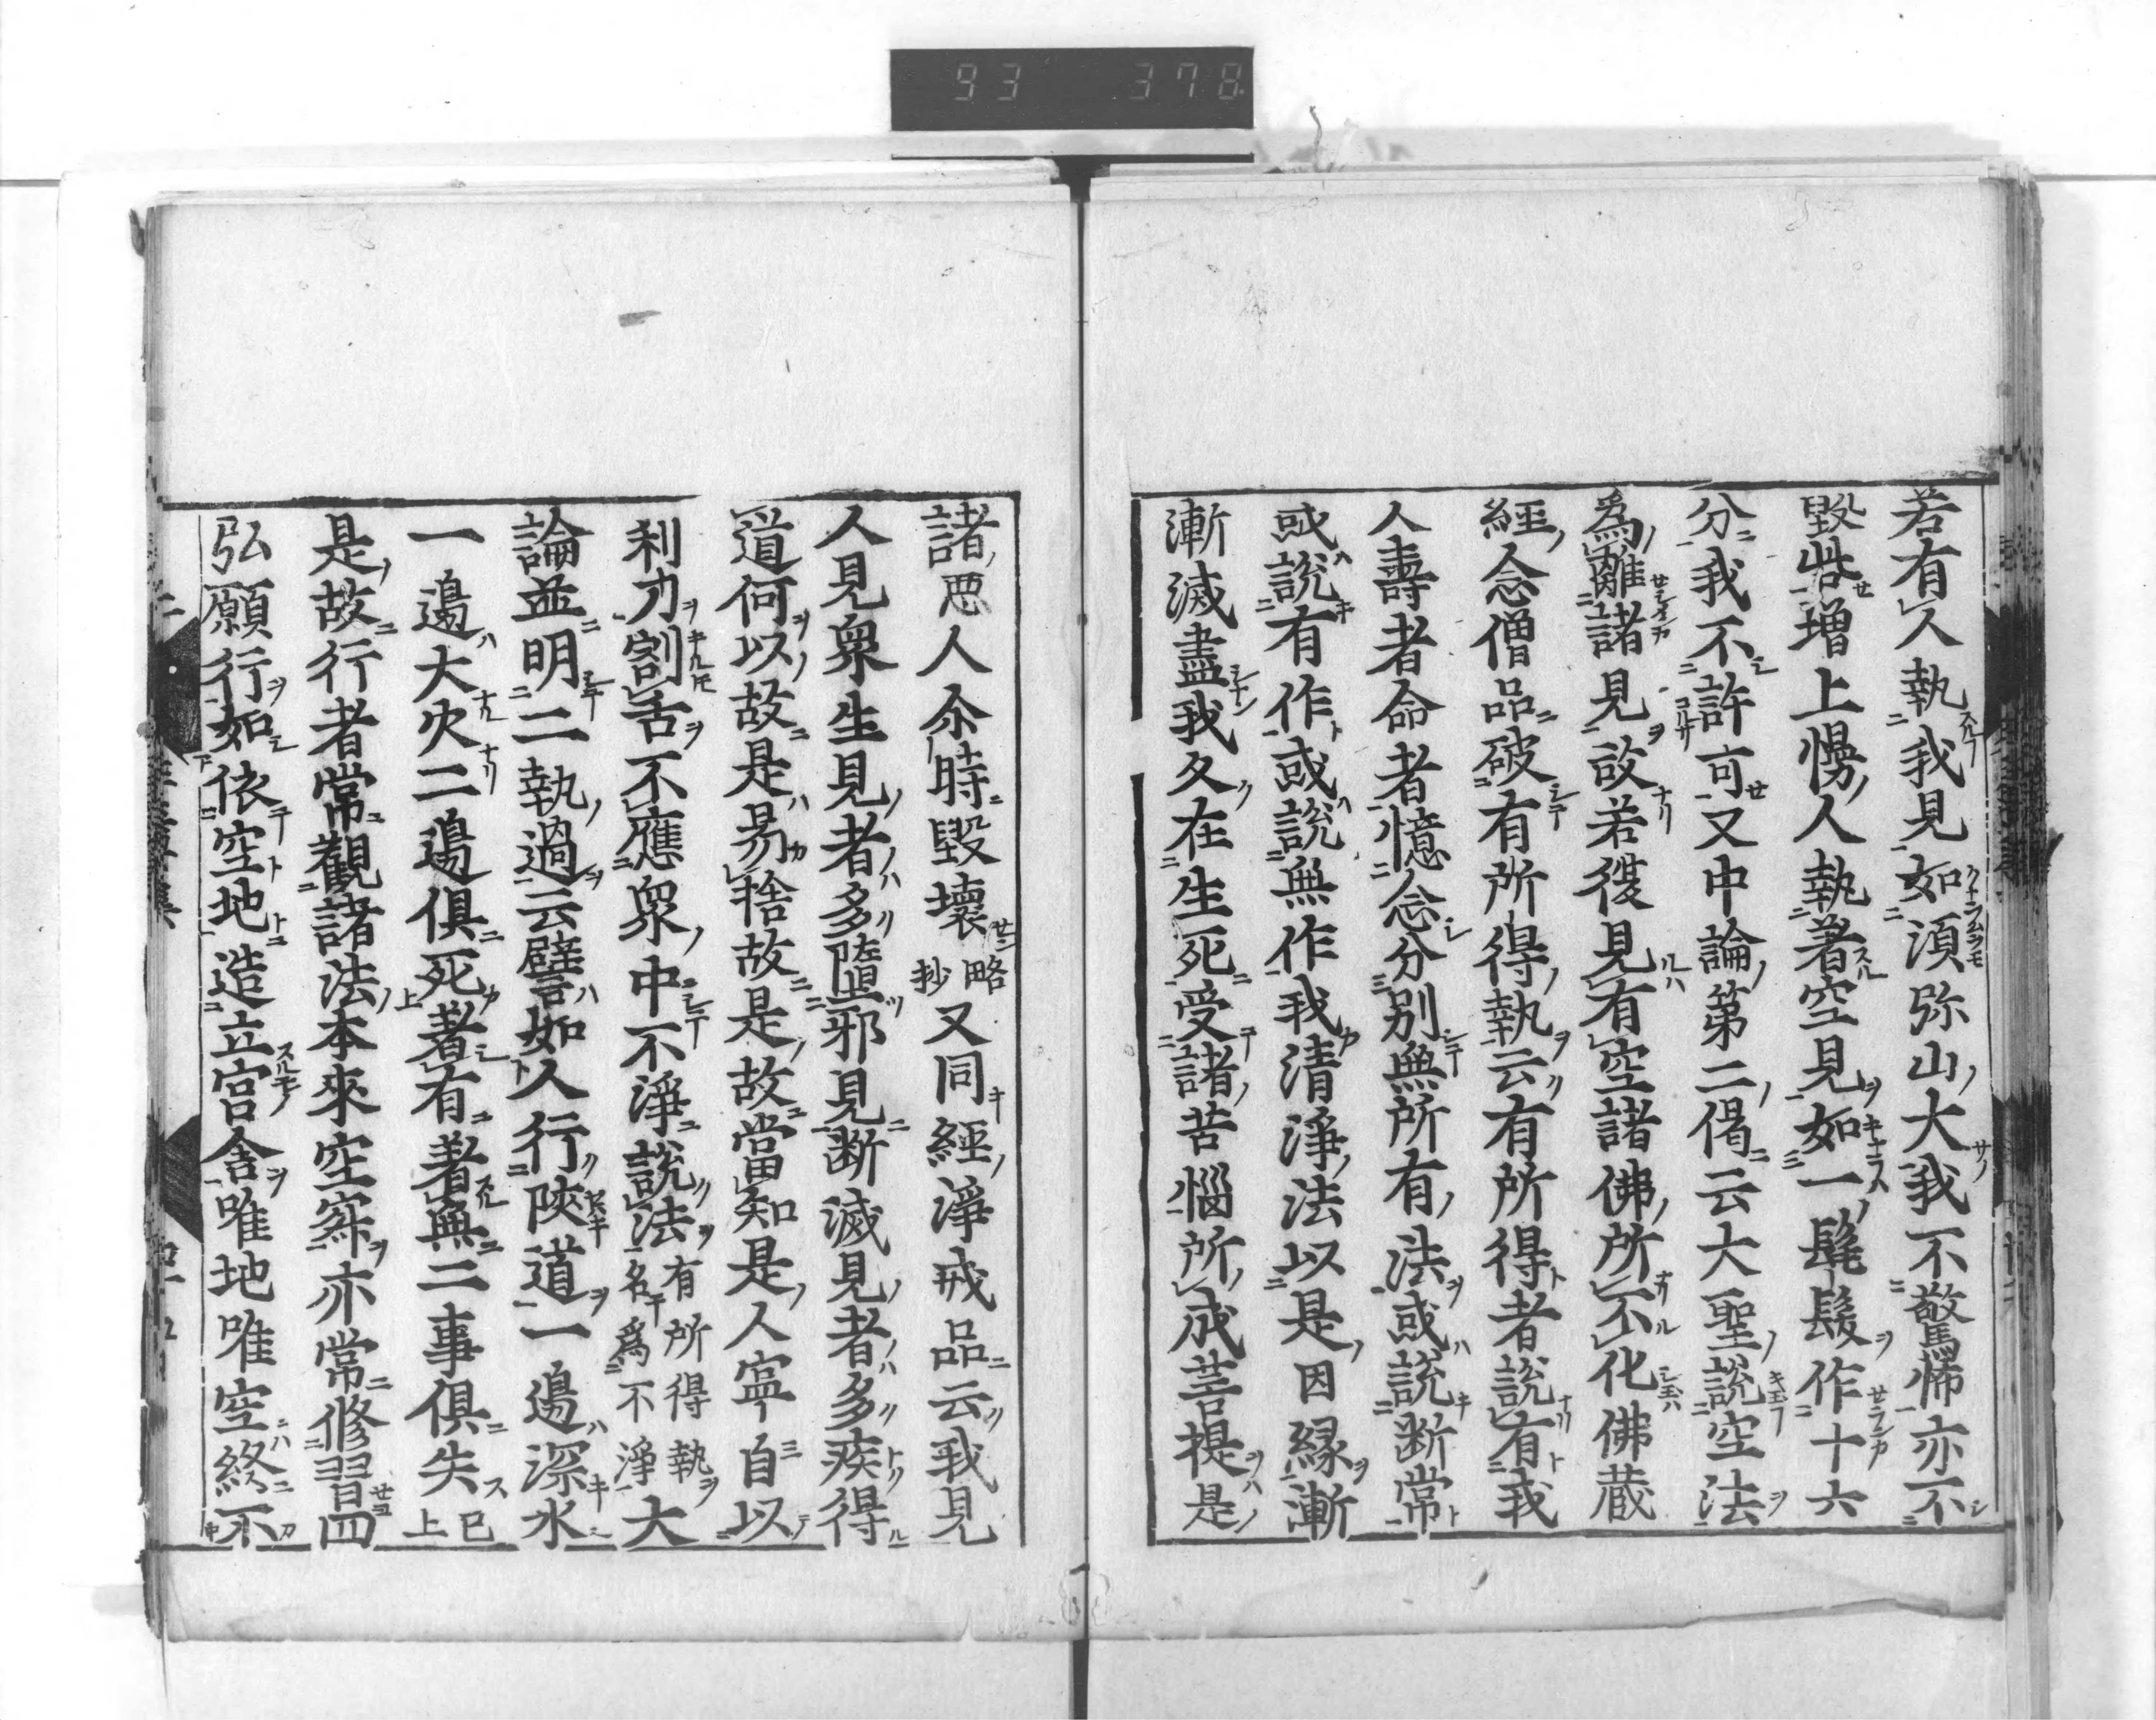 93 378
若有人執我見如須弥山大我不驚怖亦不
毀呰增上慢人執著空見如一髦髮作十六
分我不許可又中論第二偈云大聖說空法
爲離諸見故若復見有空諸佛所不化佛蔵
經念僧品破有所得執云有所得者說有我
人壽者命者憶念分別無所有法或說断常
或說有作或說無作我清淨法以是因縁漸
漸滅盡我久在生死受諸苦惱所成菩提是
諸悪人尒時毀壞略抄又同經淨戒品云我見
人見衆生見者多墮邪見断滅見者多疾得
道何以故是易捨故是故當知是人寧自以
利刀割舌不應衆中不淨說法有所得執名爲不淨大
論並明二執過云譬如人行陜道一邊深水
一邊大火二邊俱死著有著無二事俱失已上
是故行者常觀諸法本來空寂亦常修習四
弘願行如依空地造立宮舎唯地唯空終不